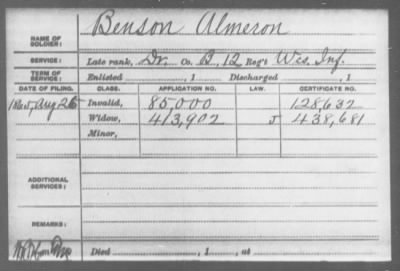 Benson Almeron
NAME OF SOLDIER:
SERVICE: Late rank, Dr. Co. B, 12 Reg't Wis. Inf.
TERM OF SERVICE: Enlisted , 1 Discharged , 1
DATE OF FILING. CLASS. APPLICATION NO. LAW. CERTIFICATE NO.
1865, Aug 26 Invalid, 85,000 128,632
Widow, 413,902 J 438,681
Minor,
ADDITIONAL SERVICES:
REMARKS:
Died , 1 , at